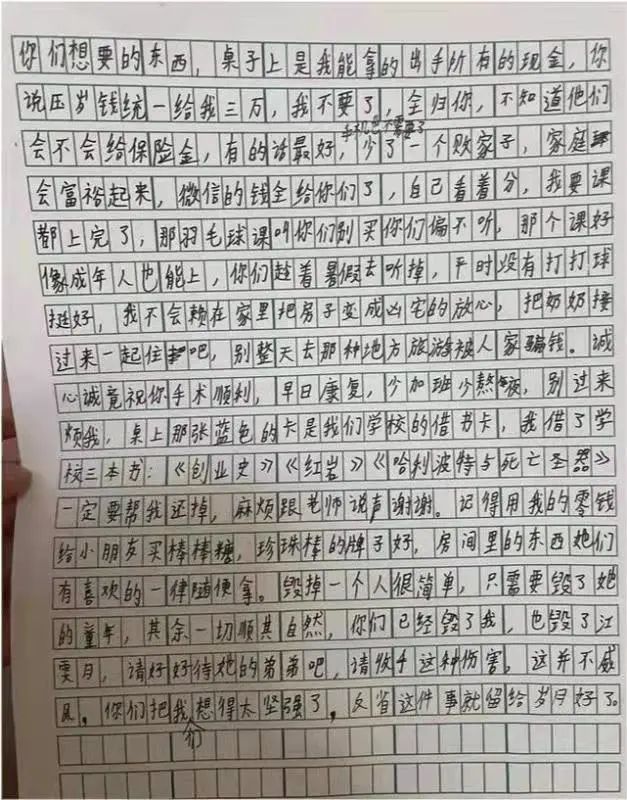 你们想要的东西，桌子上是我能拿的出手所有的现金，你
说压岁钱统一给我三万，我不要了，全归你，不知道他们
手机也不需要了
会不会给保险金，有的话最好，少了一个败家子，家庭
会富裕起来，微信的钱全给你们了，自己看着分，我要课
都上完了，那羽毛球课叫你们别买你们偏不听，那个课好
像成年人也能上，你们趁着暑假去听掉，平时没有打打球
挺好，我不会赖在家里把房子变成凶宅的放心，把奶奶接
过来一起住吧，别整天去那种地方旅游被人家骗钱。诚
心诚意祝你手术顺利，早日康复，少加班少熬夜，别过来
烦我，桌上那张蓝色的卡是我们学校的借书卡，我借了学
校三本书：《创业史》《红岩》《哈利波特与死亡圣器》
一定要帮我还掉，麻烦跟老师说声谢谢。记得用我的零钱
给小朋友买棒棒糖，珍珠棒的牌子好，房间里的东西她们
有喜欢的一律随便拿。毁掉一个人很简单，只需要毁了她
的童年，其余一切顺其自然，你们已经毁了我，也毁了江
雯月，请好好待她的弟弟吧，请收手这种伤害，这并不感
，你们把我想得太坚强了，反省这件事就留给岁月好了。
们